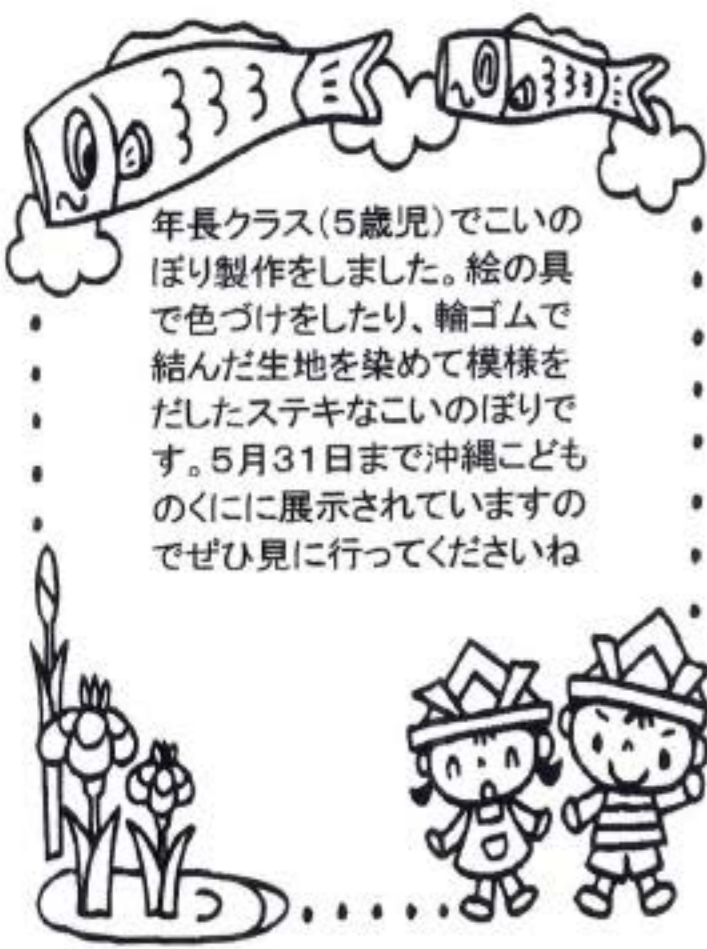 年長クラス(5歳児)でこいの
ぼり製作をしました。絵の具
で色づけをしたり、輪ゴムで
結んだ生地を染めて模様を
だしたステキなこいのぼりで
す。5月31日まで沖縄こども
のくにに展示されていますの
でぜひ見に行ってくださいね